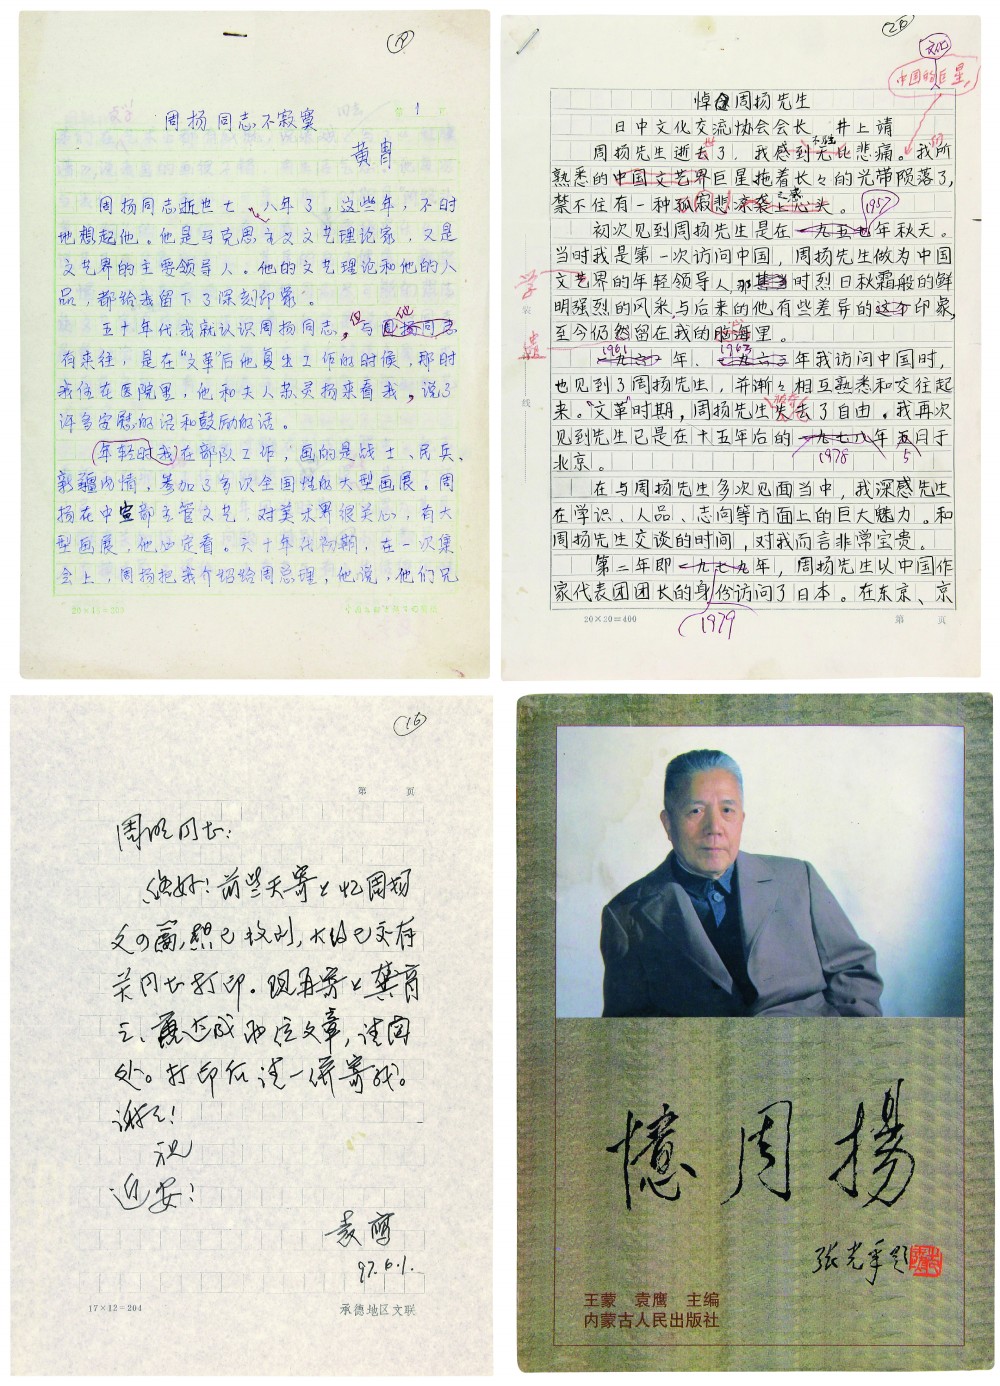 19
1
周扬同志不寂寞
黄胄
周扬同志逝世七、八年了，这些年，不时
地想起他。他是马克思主义文艺理论家，又是
文艺界的主要领导人。他的文艺理论和他的人
品，都给我留下了深刻印象。
五十年代我就认识周扬同志，但与他周扬同志
有来往，是在“文革”后他复出工作的时候，那时
我住在医院里，他和夫人苏灵扬来看我，说了
许多安慰的话和鼓励的话。
年轻时我在部队工作，画的是战士、民兵、
新疆风情，参加了多次全国性的大型画展。周
扬在中宣部主管文艺，对美术界很关心，有大
型画展，他必定看。六十年代初期，在一次集
会上，周扬把我介绍给周总理，他说，他们兄
20×15=300
20
文化
中国的巨星
悼念周扬先生
日中文化交流协会会长 井上靖
周扬先生逝去了，我感到无比悲痛。我所
熟悉的中国文艺界巨星拖着长々的光带陨落了，
禁不住有一种孤寂悲凉袭上心头。
1957
初次见到周扬先生是在一九五七年秋天。
当时我是第一次访问中国，周扬先生做为中国
文艺界的年轻领导人，那时烈日秋霜般的鲜
明强烈的风采，与后来的他有些差异的这个印象，
至今仍然留在我的脑海里。
1961 1963
一九六一年、一九六三年我访问中国时，
也见到了周扬先生，并渐々相互熟悉和交往起
来。“文革”时期，周扬先生失去了自由。我再次
见到先生已是在十五年后的一九七八年五月于
1978 5
北京。
在与周扬先生多次见面当中，我深感先生
在学识、人品、志向等方面上的巨大魅力。和
周扬先生交谈的时间，对我而言非常宝贵。
第二年即一九七九年，周扬先生以中国作
家代表团团长的身份访问了日本。在东京、京
1979
装
线
20×20=400 第 页
16
第 页
周明同志：
您好！前些天寄上忆周扬
文的篇，想已收到，大约已交有
关同志打印。现再寄上龚育
之、顾达成两位文章，请阅
处。打印后请一併寄我。
谢谢！
祝
近安！
袁鹰
97.6.1.
17×12=204 承德地区文联
憶周揚
张光年题
王蒙 袁鹰 主编
内蒙古人民出版社